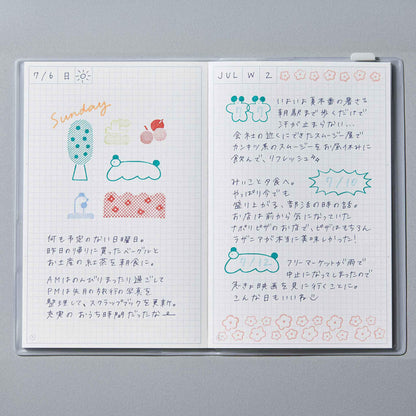 7/6 日
Sunday
何も予定のない日曜日。
昨日の帰りに買ったベーグルと
お土産の紅茶を朝食に。
AMはのんびりまったり過ごして
PMは先月の旅行の写真を
整理して、スクラップブックを更新。
充実のおうち時間だったなー
JUL W 2
いよいよ夏本番の暑さ
朝駅まで歩くだけで
汗が止まらない...
会社の近くにできたスムージー屋で
カンキツ系のスムージーをお昼休みに
飲んで、リフレッシュ。
みいこと夕食へ。
7/10
やっぱり今でも
盛り上がる、部活の時の話。
お店は前から気になっていた
ナポリピザのお店で、ピザはもちろん
ラザニアが本当に美味しかった!
7/12
フリーマーケットが雨で
中止になってしまったので
急きょ映画を見に行くことに。
こんな日もいいね